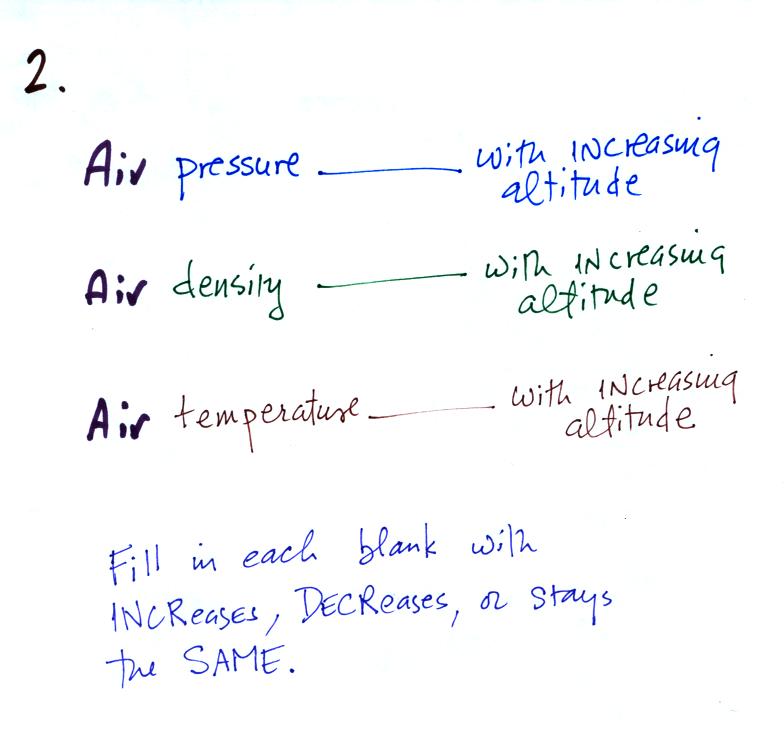 2.
Air pressure ______ with INCreasing
altitude
Air density ______ with INCreasing
altitude
Air temperature ______ with INCreasing
altitude
Fill in each blank with
INCReasES, DECReases, or stays
the SAME.